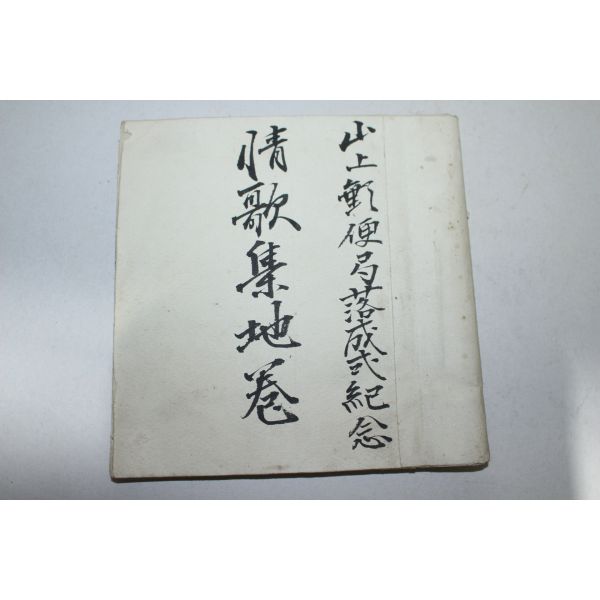 山上郵便局落成式紀念
情歌集地巻